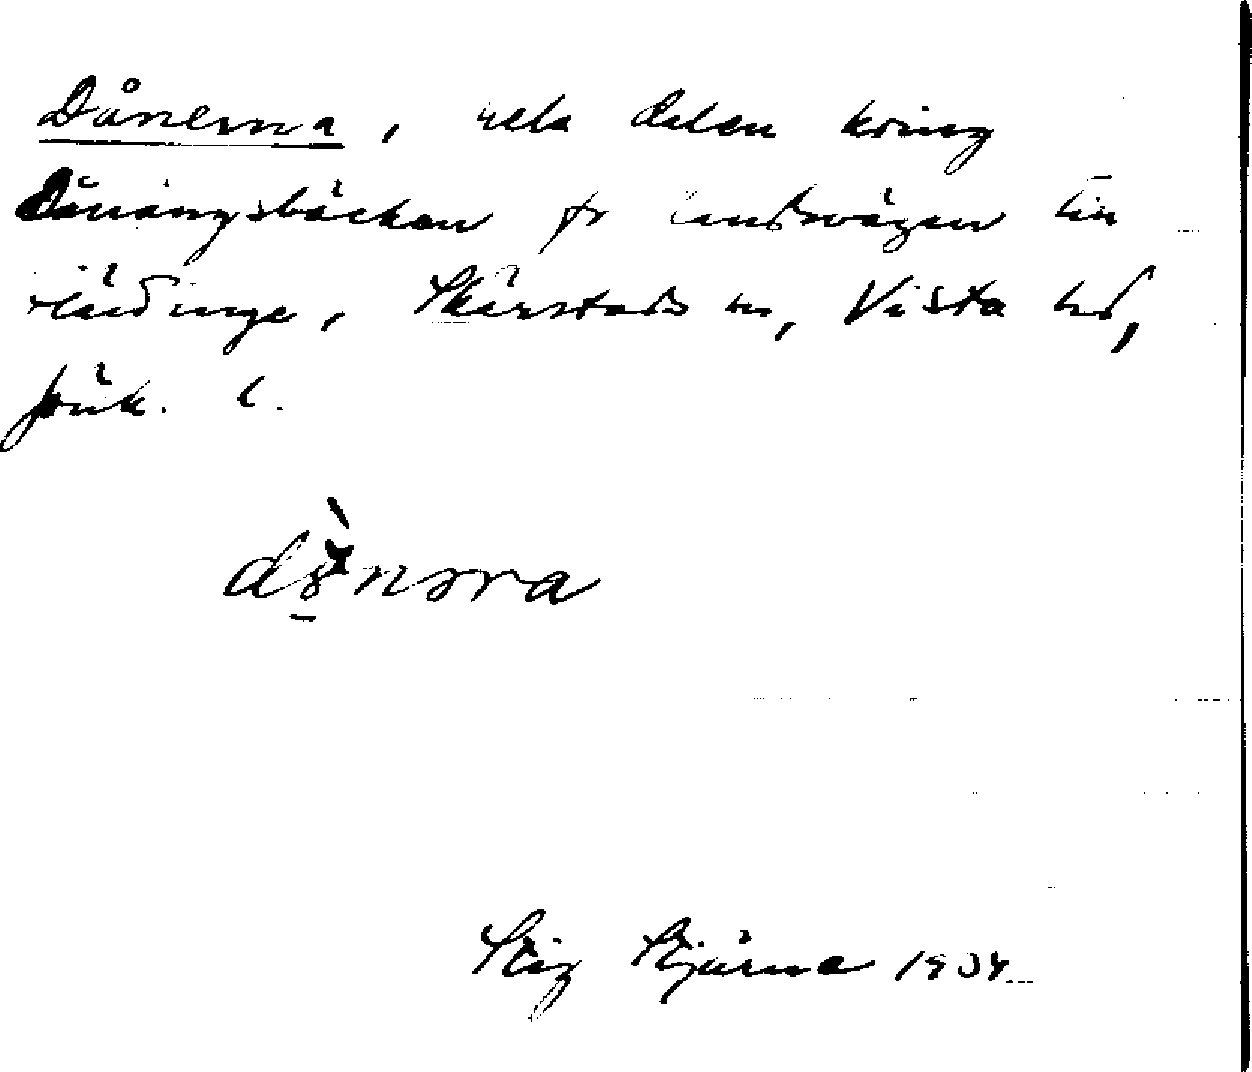 Dånerna, hela dalen kring
Dånängsbäcken fr landsvägen till
Rädinge, Skärstads sn, Vista hd,
Jönk. l.
Stig Stjärna 1934